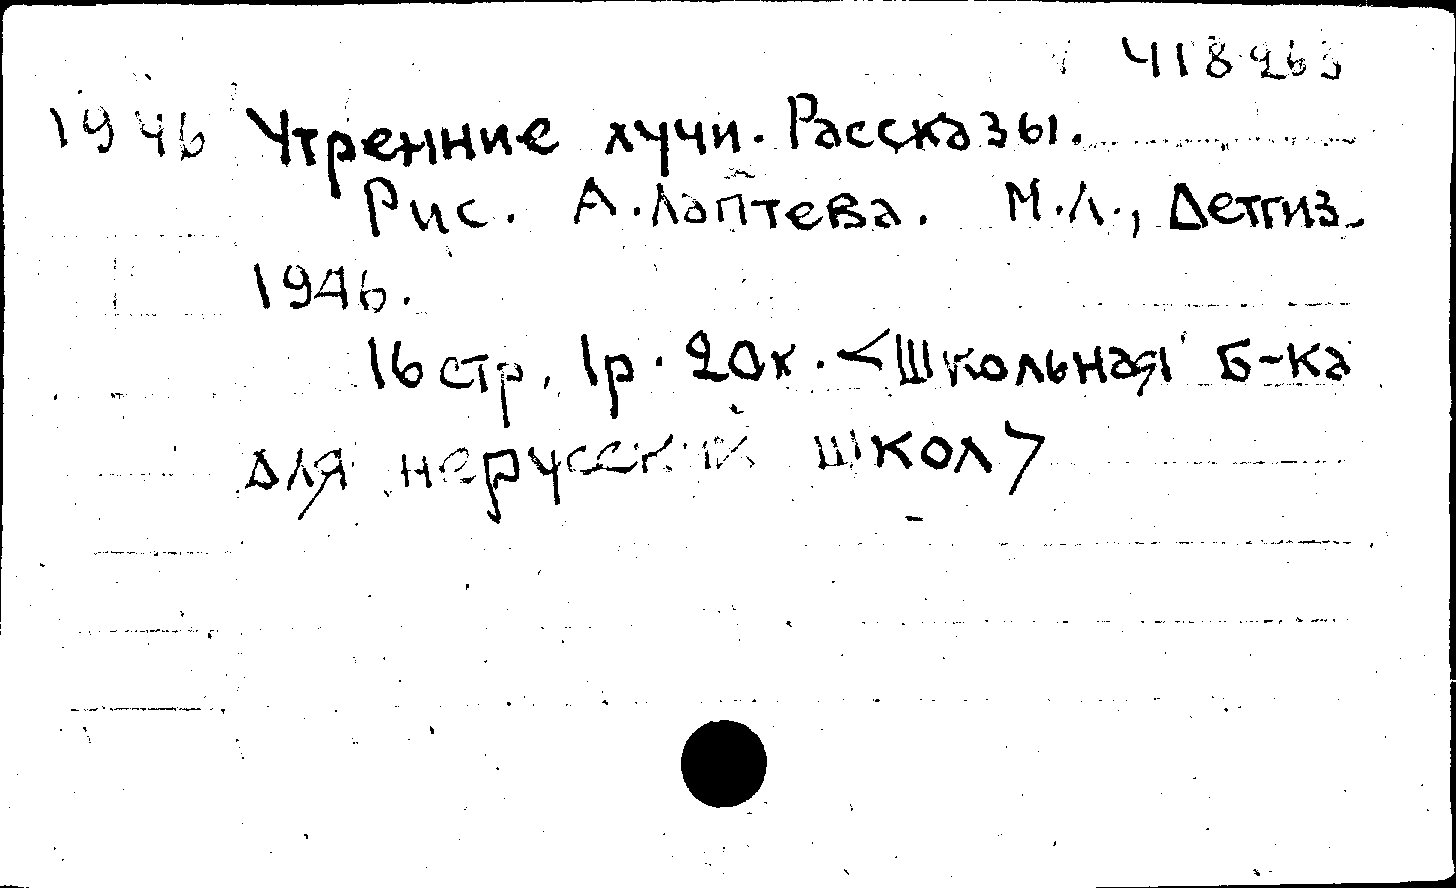 418263
1946 Утренние лучи. Рассказы.
Рис. А. Лаптева. М.Л., Детгиз.
1946.
16 стр. 1р. 20к. <Школьная б-ка
для нерусских школ>